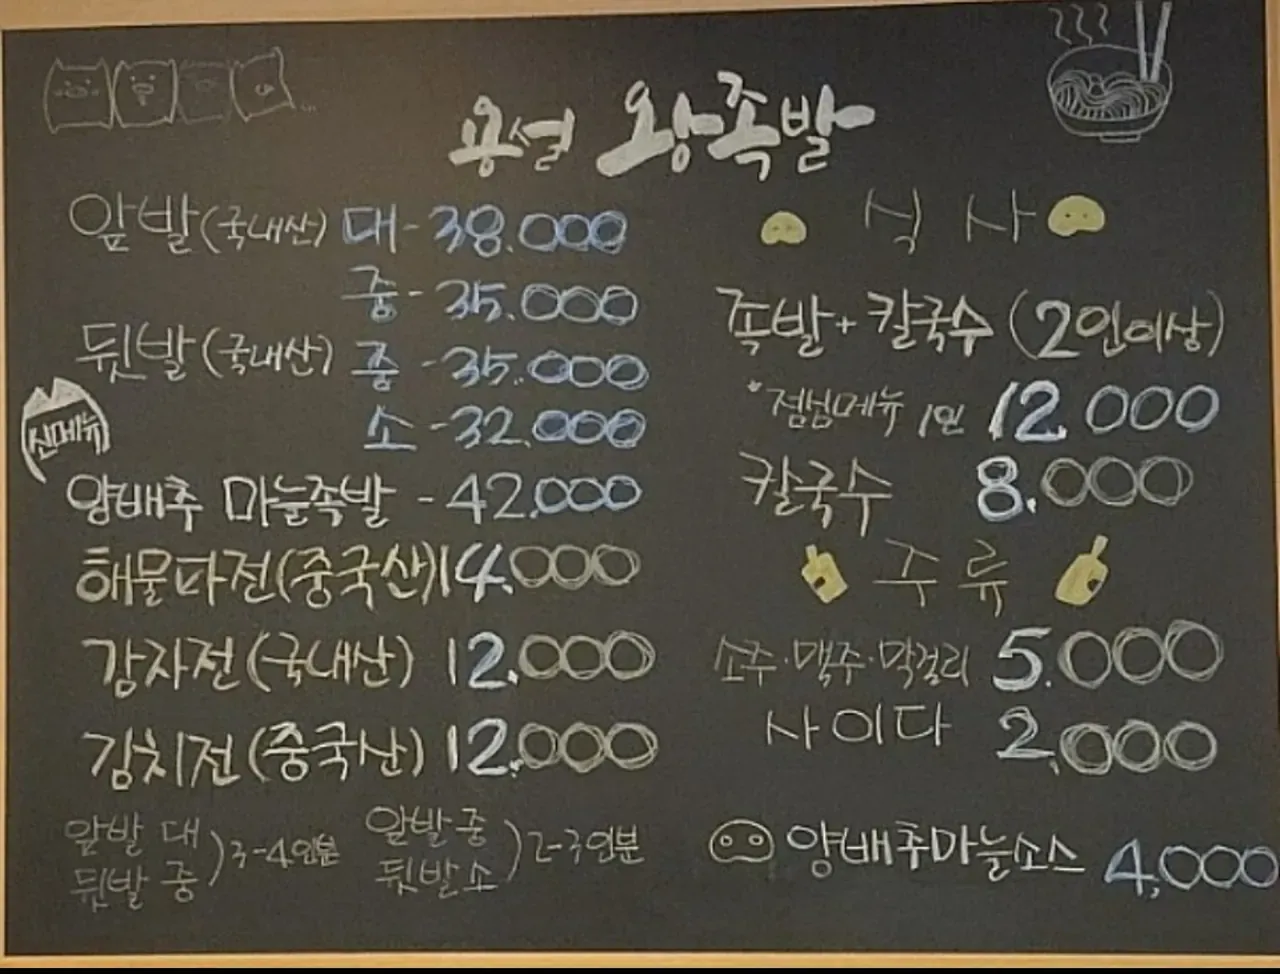 용설 왕족발
앞발(국내산) 대-38.000
중-35.000
뒷발(국내산) 중-35.000
소-32.000
신메뉴
양배추 마늘족발 -42.000
해물파전(중국산)14.000
감자전(국내산) 12.000
김치전(중국산) 12.000
앞발 대
뒷발 중
)3-4인분
앞발 중
뒷발 소
)2-3인분
식사
족발+칼국수 (2인이상)
*점심메뉴 1인 12.000
칼국수 8.000
주류
소주·맥주·막걸리 5.000
사이다 2,000
양배추마늘소스 4,000